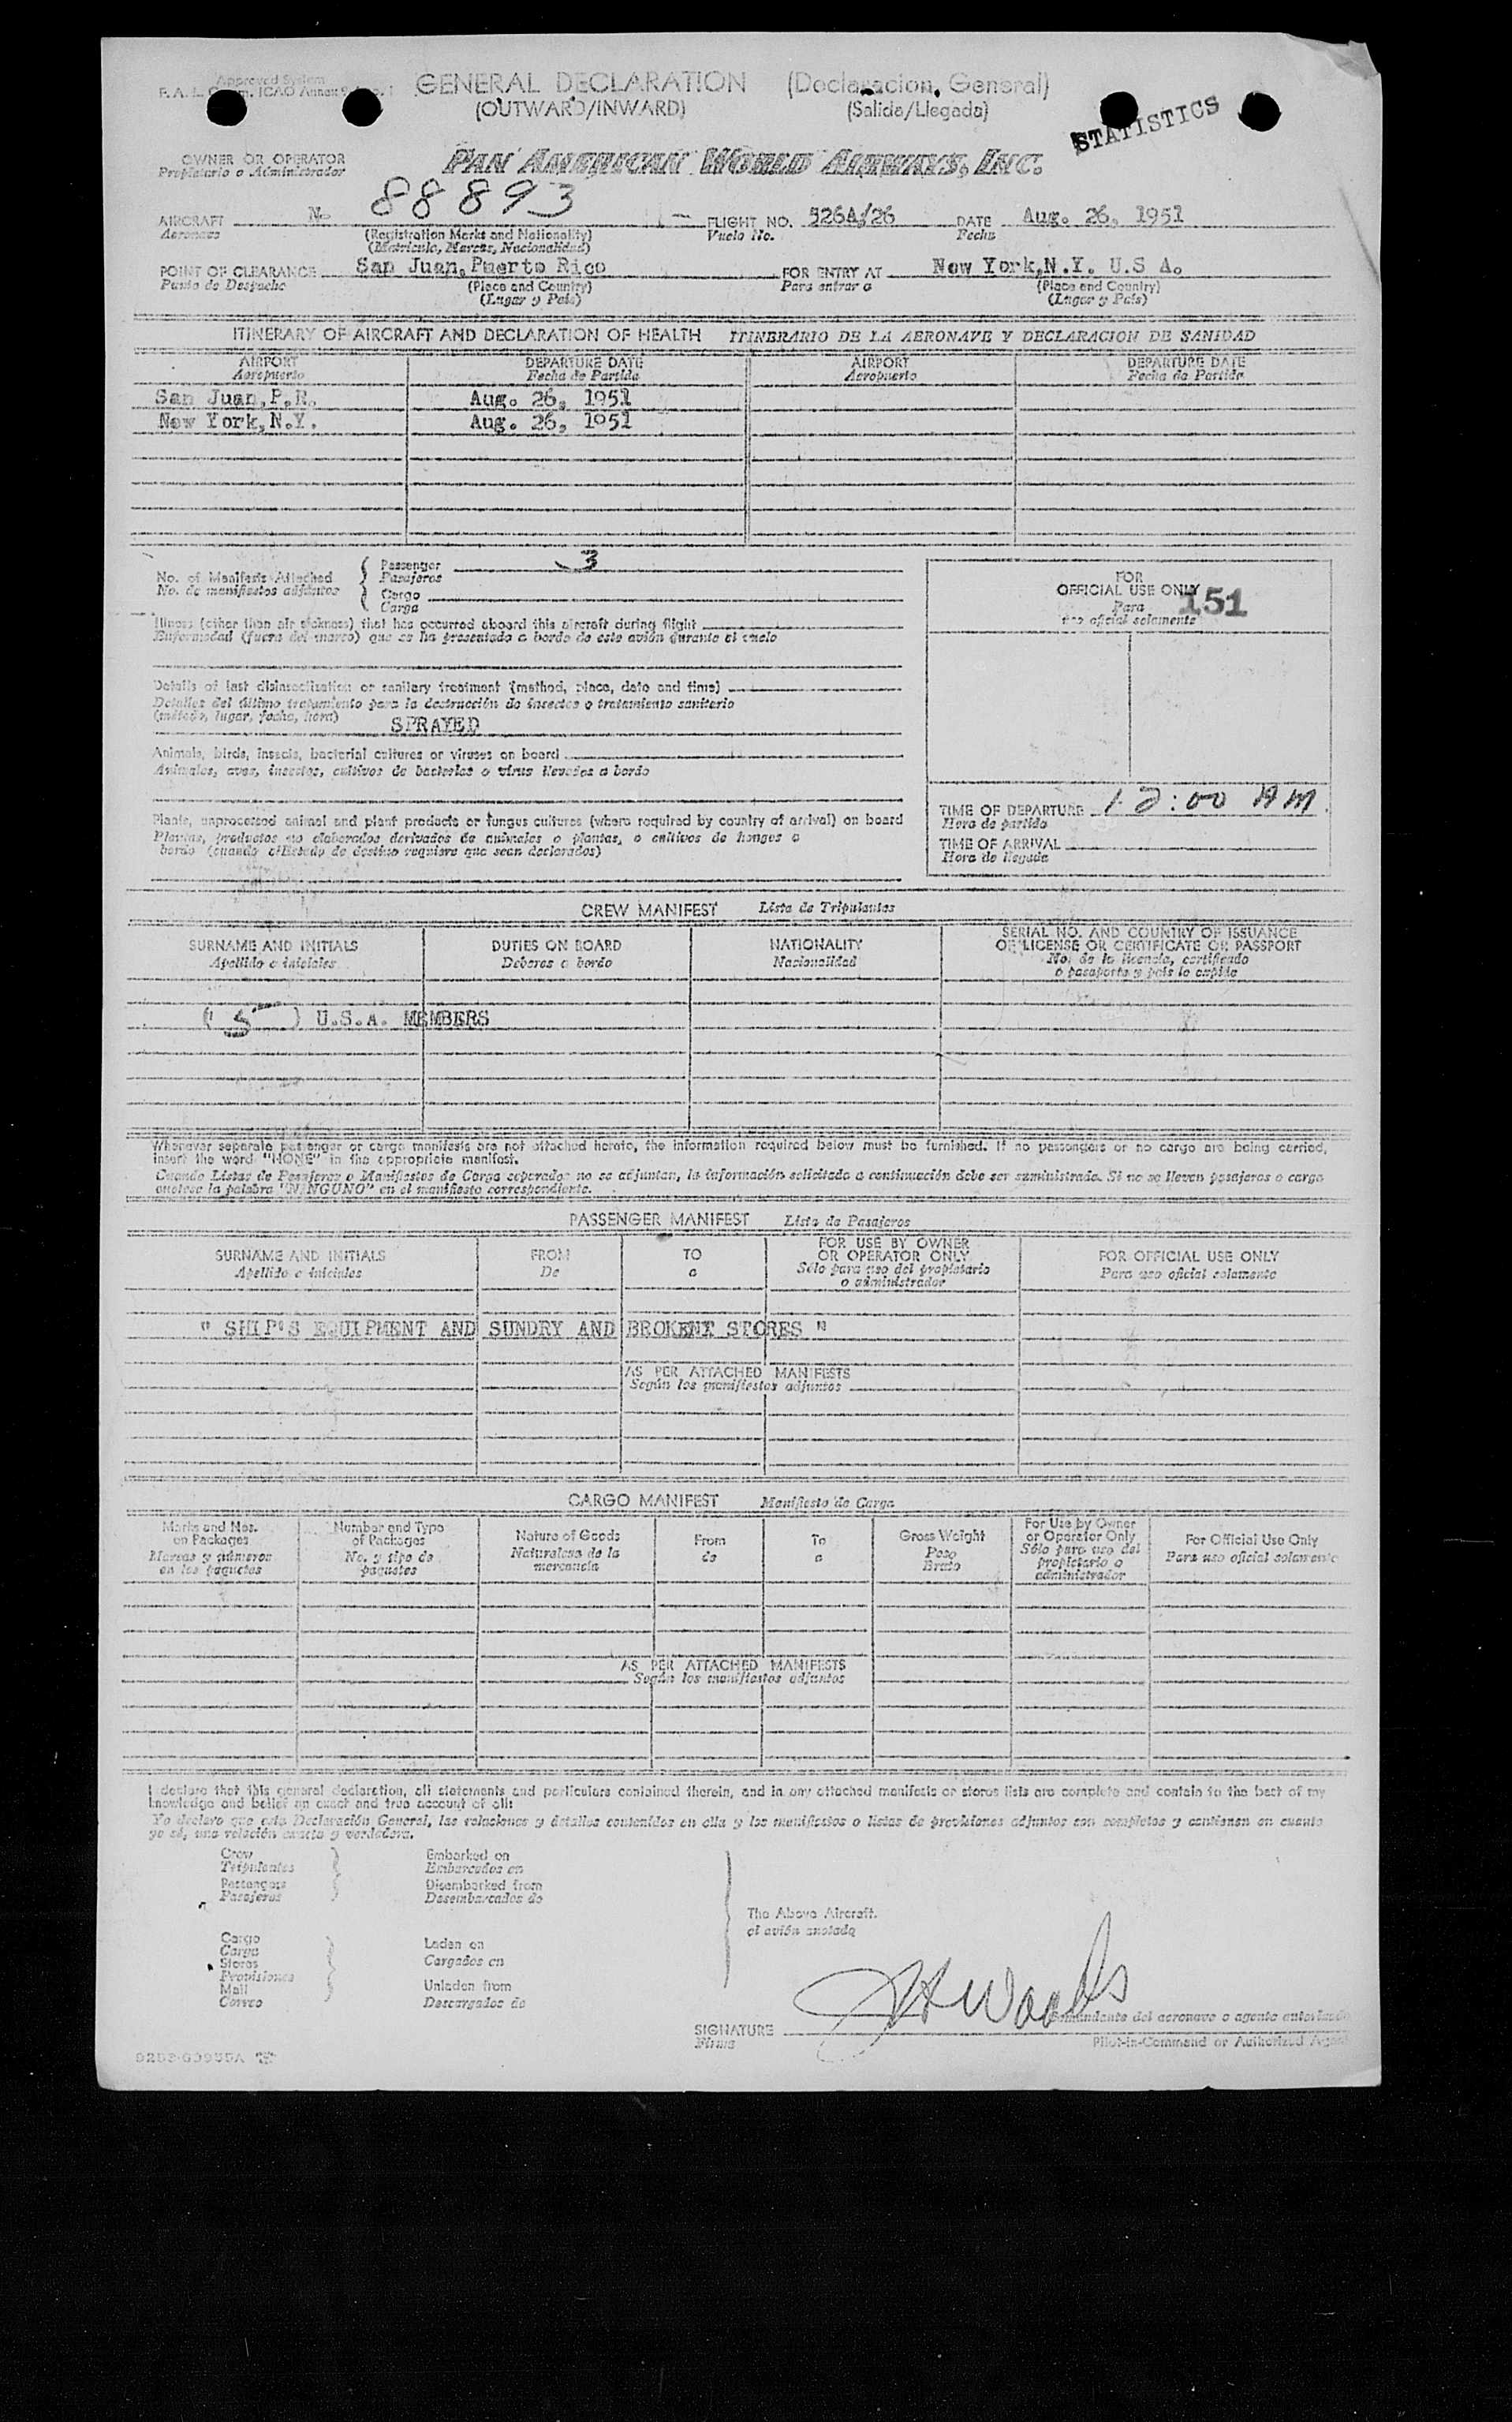 Approved System
GENERAL DECLARATION (Declaracion General)
(OUTWARD/INWARD) (Salida/Llegada)
STATISTICS
OWNER OR OPERATOR
Propietario o Administrador
PAN AMERICAN WORLD AIRWAYS, INC.
AIRCRAFT N- 88893 FLIGHT NO. 526A/26 DATE Aug. 26, 1951
Aeronave (Registration Marks and Nationality) Vuelo No. Fecha
(Matricula, Marcas, Nacionalidad)
POINT OF CLEARANCE San Juan, Puerto Rico FOR ENTRY AT New York, N.Y. U.S A.
Punto de Despacho (Place and Country) Para entrar a (Place and Country)
(Lugar y País) (Lugar y País)
ITINERARY OF AIRCRAFT AND DECLARATION OF HEALTH ITINERARIO DE LA AERONAVE Y DECLARACION DE SANIDAD
AIRPORT DEPARTURE DATE AIRPORT DEPARTURE DATE
Aeropuerto Fecha de Partida Aeropuerto Fecha de Partida
San Juan, P.R. Aug. 26, 1951
New York, N.Y. Aug. 26, 1951
No. of Manifests Attached
No. de manifiestos adjuntos
Passenger 3
Pasajeros
Cargo
Carga
FOR
OFFICIAL USE ONLY 151
Para
uso oficial solamente
Illness (other than air sickness) that has occurred aboard this aircraft during flight
Enfermedad (fuera del mareo) que se ha presentado a bordo de este avión durante el vuelo
Details of last disinsectization or sanitary treatment (method, place, date and time)
Detalles del último tratamiento para la destrucción de insectos o tratamiento sanitario
(método, lugar, fecha, hora)
SPRAYED
Animals, birds, insects, bacterial cultures or viruses on board
Animales, aves, insectos, cultivos de bacterias o virus llevados a bordo
Plants, unprocessed animal and plant products or fungus cultures (where required by country of arrival) on board
Plantas, productos no elaborados derivados de animales o plantas, o cultivos de hongos a
bordo (cuando el Estado de destino requiera que sean declarados)
TIME OF DEPARTURE 12:00 AM
Hora de partida
TIME OF ARRIVAL
Hora de llegada
CREW MANIFEST Lista de Tripulantes
SURNAME AND INITIALS DUTIES ON BOARD NATIONALITY SERIAL NO. AND COUNTRY OF ISSUANCE
OF LICENSE OR CERTIFICATE OR PASSPORT
Apellido e iniciales Deberes a bordo Nacionalidad No. de la licencia, certificado
o pasaporte y país lo expide
(5) U.S.A. MEMBERS
Whenever separate passenger or cargo manifests are not attached hereto, the information required below must be furnished. If no passengers or no cargo are being carried,
insert the word "NONE" in the appropriate manifest.
Cuando Listas de Pasajeros o Manifiestos de Carga separados no se adjuntan, la información solicitada a continuación debe ser suministrada. Si no se llevan pasajeros o carga
anótese la palabra "NINGUNO" en el manifiesto correspondiente.
PASSENGER MANIFEST Lista de Pasajeros
SURNAME AND INITIALS FROM TO FOR USE BY OWNER
OR OPERATOR ONLY FOR OFFICIAL USE ONLY
Apellido e iniciales De a Sólo para uso del propietario
o administrador Para uso oficial solamente
" SHIP'S EQUIPMENT AND SUNDRY AND BROKENT STORES "
AS PER ATTACHED MANIFESTS
Según los manifiestos adjuntos
CARGO MANIFEST Manifiesto de Carga
Marks and Nos.
on Packages
Marcas y números
en los paquetes
Number and Type
of Packages
No. y tipo de
paquetes
Nature of Goods
Naturaleza de la
mercancía
From
de
To
a
Gross Weight
Peso
Bruto
For Use by Owner
or Operator Only
Sólo para uso del
propietario o
administrador
For Official Use Only
Para uso oficial solamente
AS PER ATTACHED MANIFESTS
Según los manifiestos adjuntos
I declare that this general declaration, all statements and particulars contained therein, and in any attached manifests or stores lists are complete and contain to the best of my
knowledge and belief an exact and true account of all:
Yo declaro que esta Declaración General, las relaciones y detalles contenidos en ella y los manifiestos o listas de provisiones adjuntos son completos y contienen en cuanto
yo sé, una relación exacta y verdadera.
Crew
Tripulantes
Passengers
Pasajeros
Embarked on
Embarcados en
Disembarked from
Desembarcados de
The Above Aircraft.
el avión anotado
Cargo
Carga
Stores
Provisiones
Mail
Correo
Laden on
Cargados en
Unladen from
Descargados de
SIGNATURE
Firma
Comandante del aeronave o agente autorizado
Pilot-in-Command or Authorized Agent